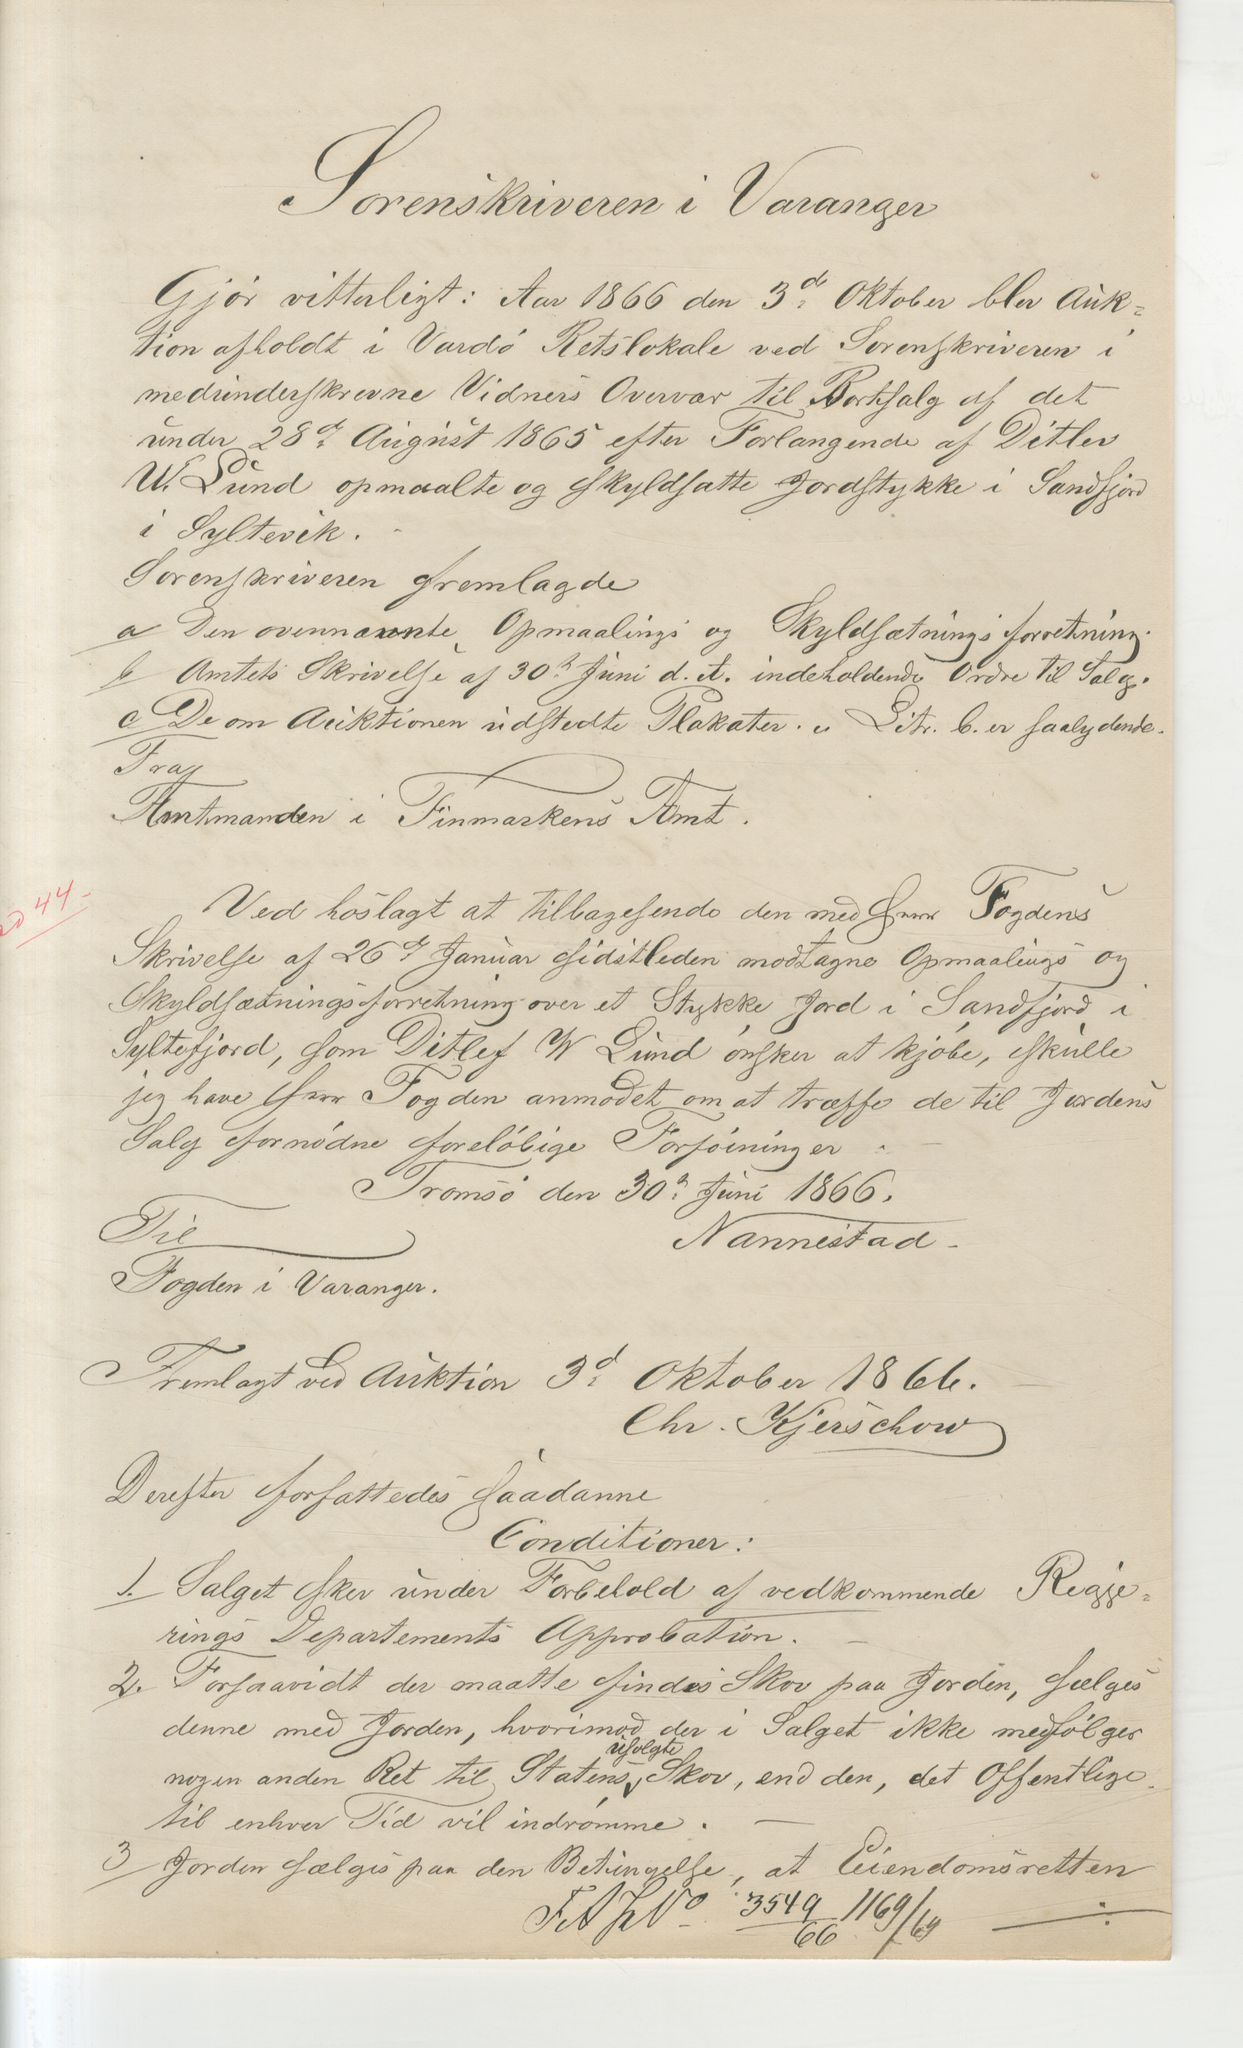 Sorenskriveren i Varanger
Gjör vitterligt: Aar 1866 den 3d Oktober blev Auk=
tion afholdt i Vardö Retslokale ved Sorenskriveren i
medunderskrevne Vidners Overvær til Bortsalg af det
under 28d August 1865 efter Forlangende af Ditlev
W. Lund opmaalte og skyldsatte Jordstykke i Sandfjord
i Syltevik.
Sorenskriveren fremlagde
a Den ovennævnte Opmaalings og Skyldsætningsforretning.
b Amtets Skrivelse af 30h Juni d. A. indeholdende Ordre til Salg.
c De om Auktionen udstedte Plakater. „ Litr. b. er saalydende.
Fra
Amtmanden i Finmarkens Amt.
44-
Ved hoslagt at tilbagesende den med Herr Fogdens
Skrivelse af 26d Januar sidstleden modtagne Opmaalings og
Skyldsætningsforretning over et Stykke Jord i Sandfjord i
Syltefjord, som Ditlef W Lund önsker at kjöbe, skulle
jeg have Herr Fogden anmodet om at træffe de til Jordens
Salg fornödne foreløbige Forföininger.
Tromsö den 30h Juni 1866.
Til
Nannestad
Fogden i Varanger.
Fremlagt ved Auktion 3d Oktober 1866.
Chr. Kjerschow
Derefter forfattedes saadanne
Conditioner:
1. Salget sker under Forbehold af vedkommende Regje=
rings Departements Approbation.
2. Forsaavidt der maatte findes Skov paa Jorden, sælges
denne med Jorden, hvorimod der i Salget ikke medfölger
usolgte
nogen anden Ret til Statens Skov, end den, det Offentlige
til enhver Tid vil indrömme.
3 Jorden sælges paa den Betingelse, at Eiendomsretten
No 3549/66 1169/69